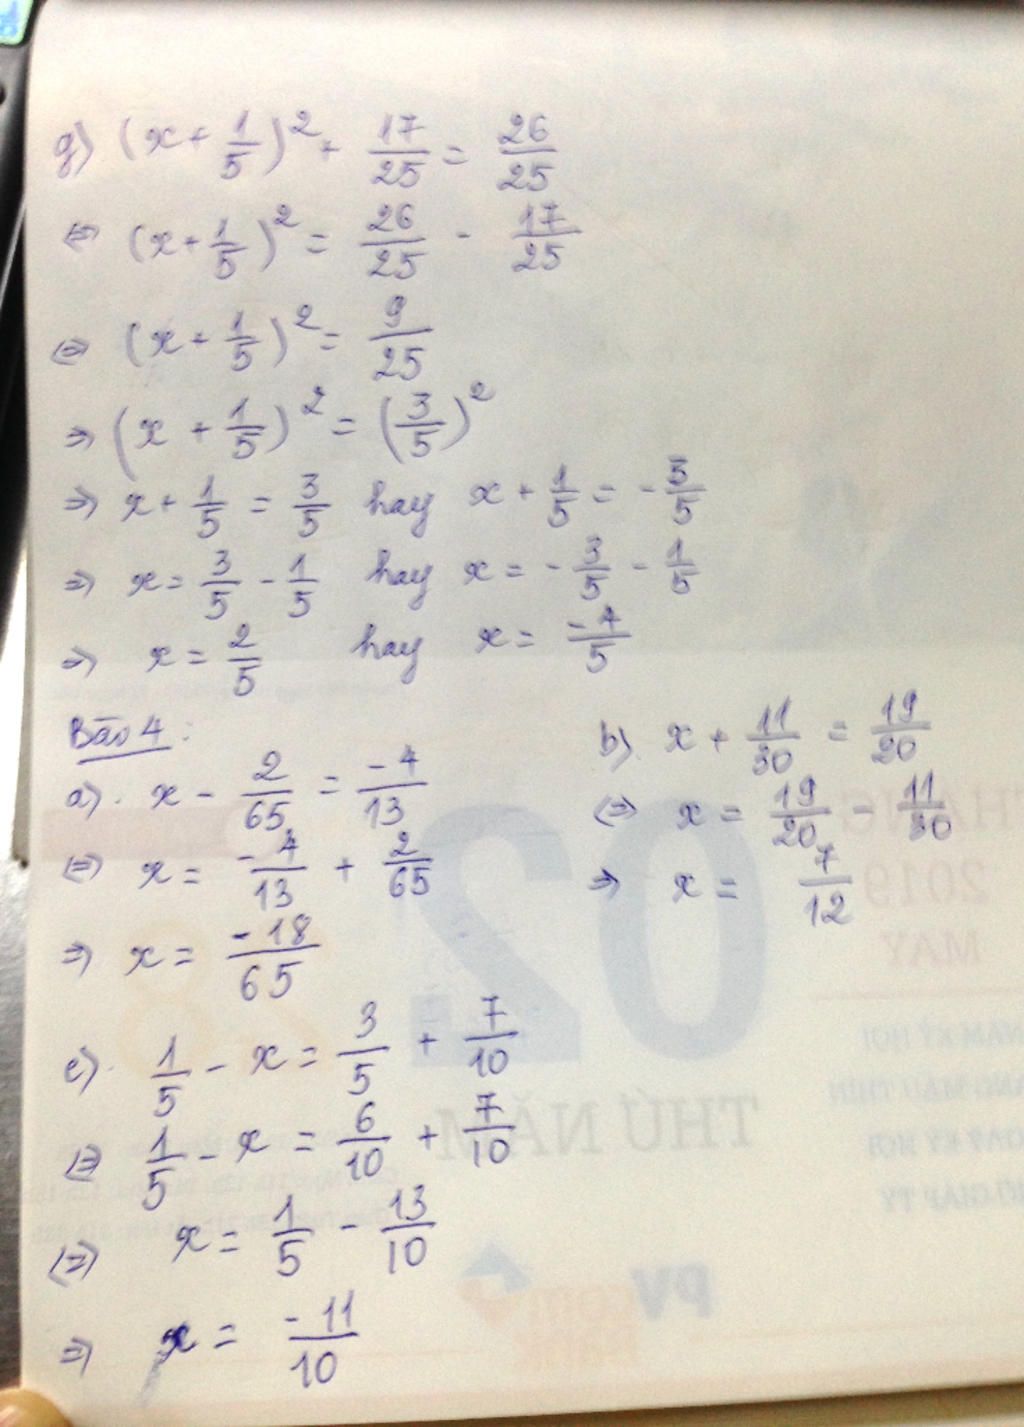 g) (x + 1/5)² + 17/25 = 26/25
⇔ (x + 1/5)² = 26/25 - 17/25
⇔ (x + 1/5)² = 9/25
⇒ (x + 1/5)² = (3/5)²
⇒ x + 1/5 = 3/5 hay x + 1/5 = -3/5
⇒ x = 3/5 - 1/5 hay x = -3/5 - 1/5
⇒ x = 2/5 hay x = -4/5
Bài 4:
a) x - 2/65 = -4/13
⇔ x = -4/13 + 2/65
⇒ x = -18/65
b) x + 11/30 = 19/20
⇔ x = 19/20 - 11/30
⇒ x = 7/12
c) 1/5 - x = 3/5 + 7/10
⇔ 1/5 - x = 6/10 + 7/10
⇔ x = 1/5 - 13/10
⇒ x = -11/10
THÁNG
02
2019
MAY
THỨ NĂM
PVcom